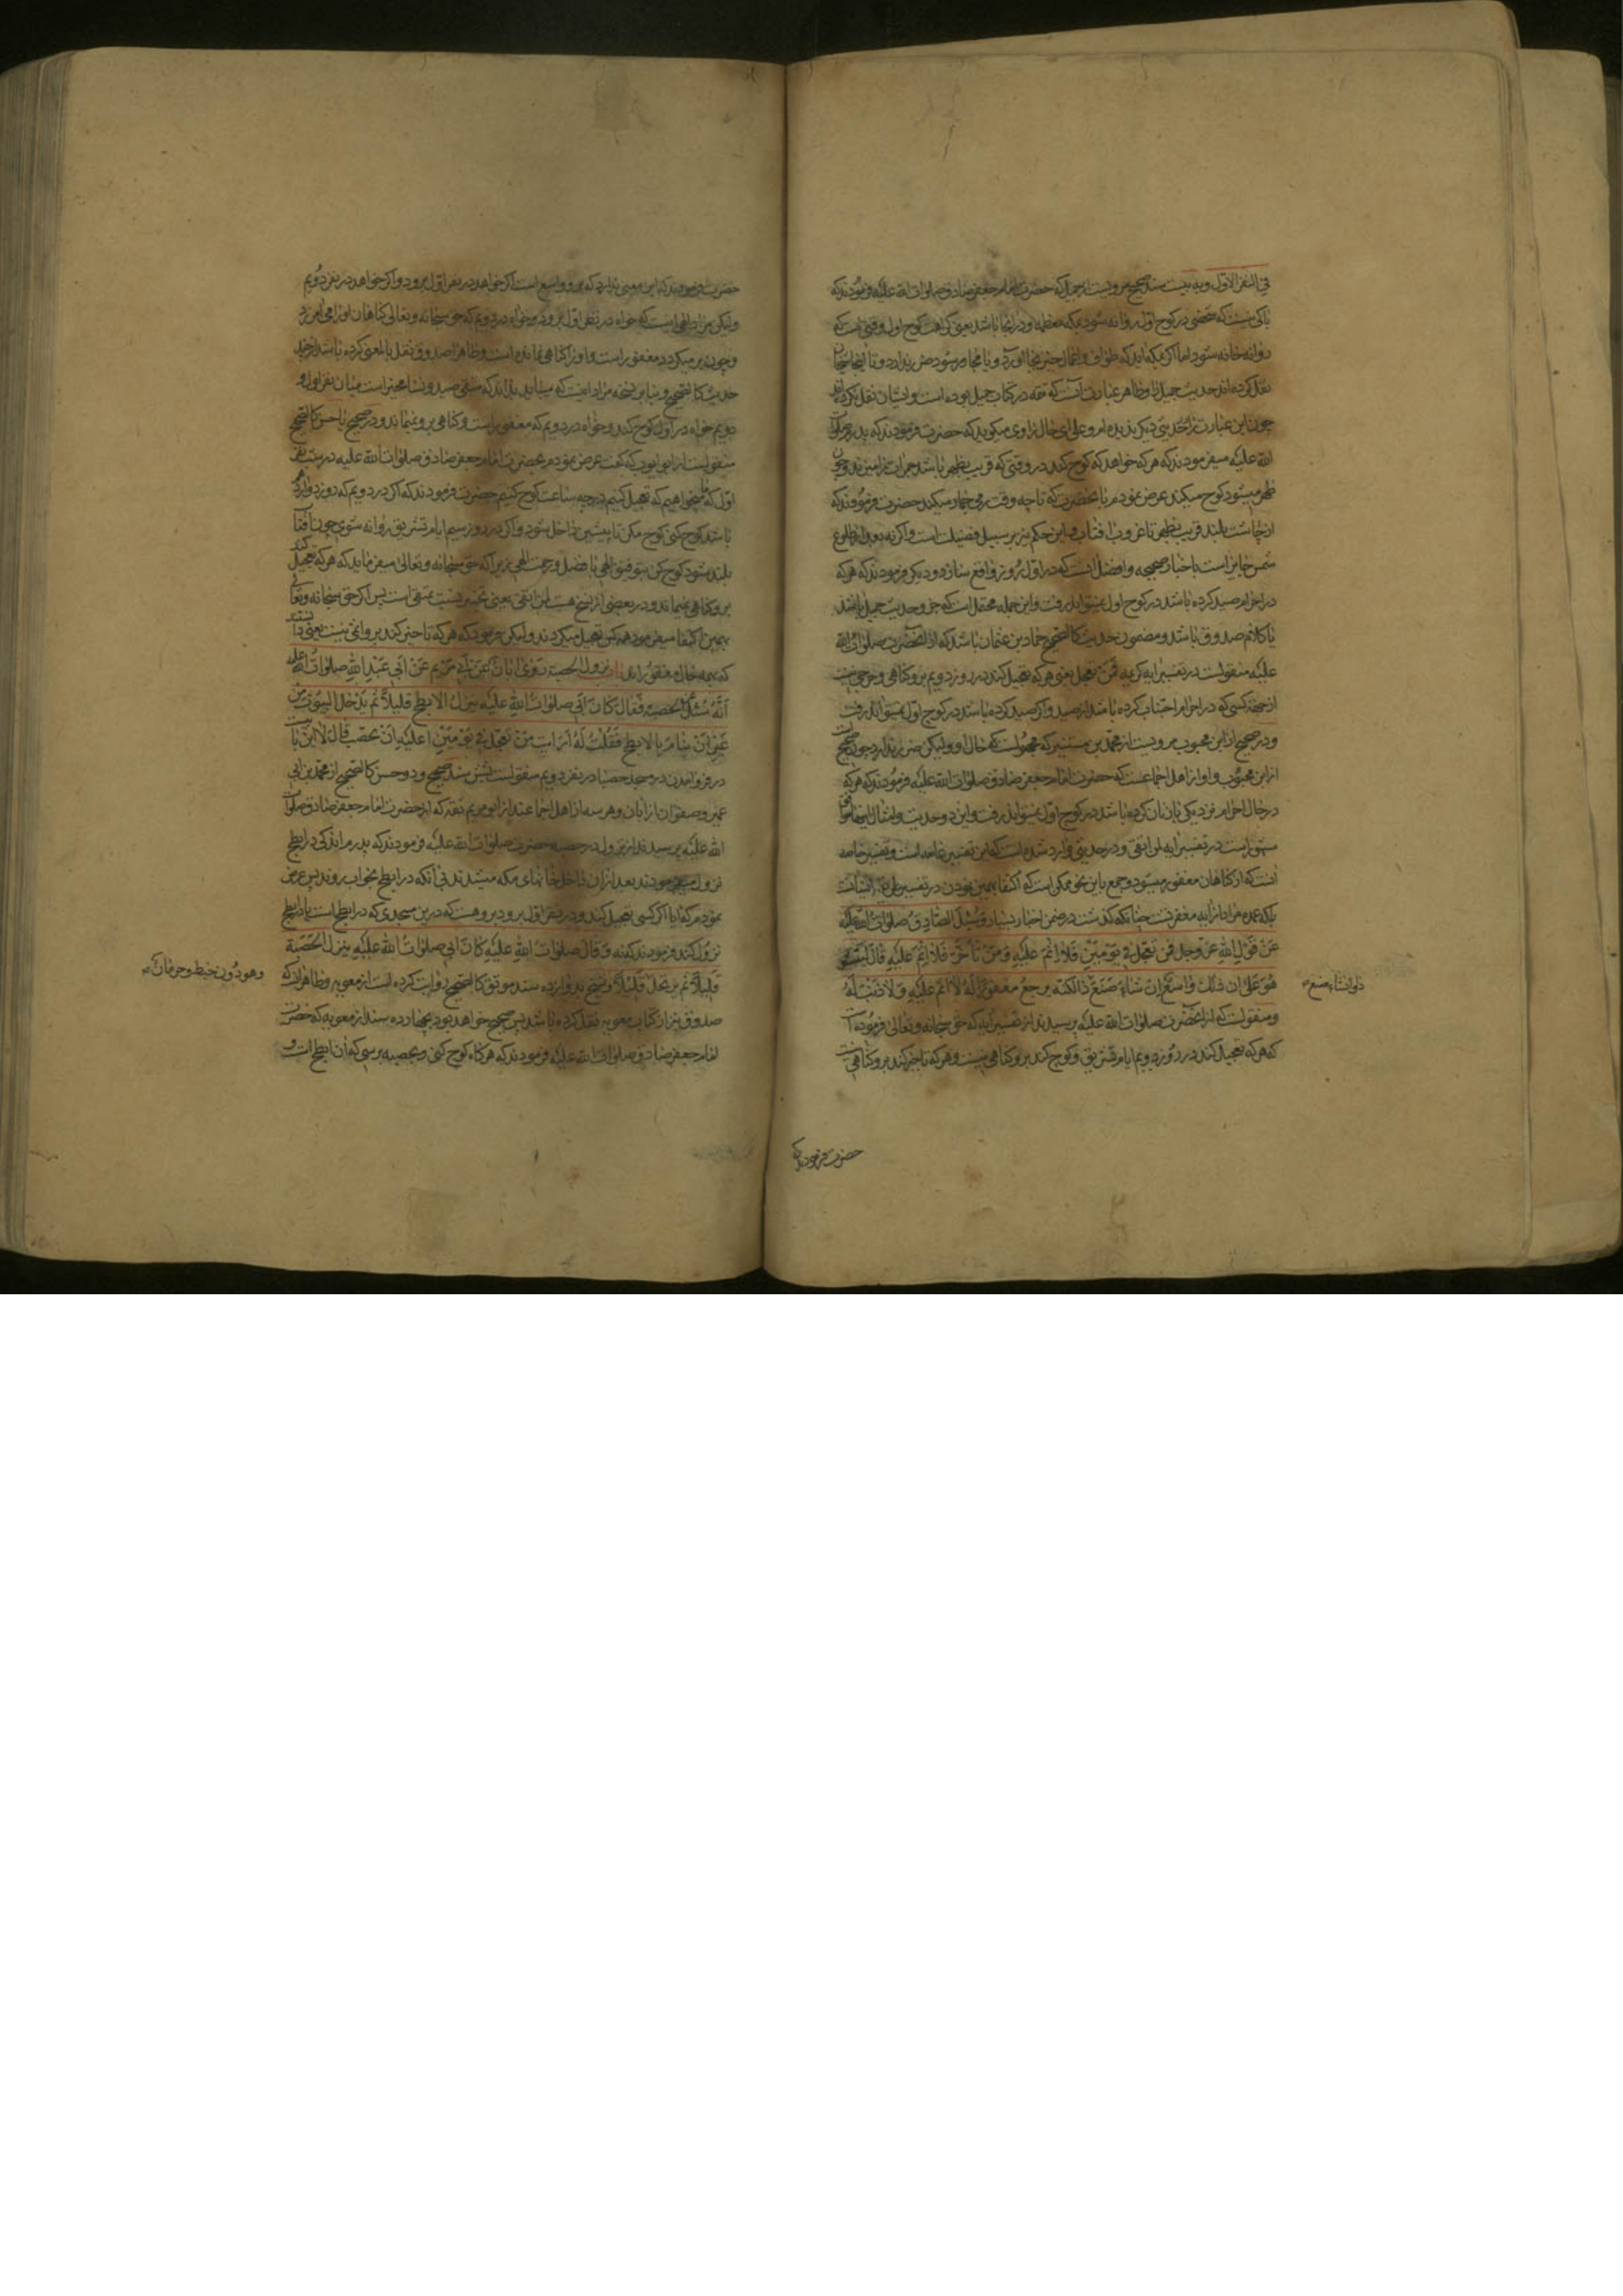 في النفر الاول و به بیست سند صحیح مرویست از جمیل که حضرت امام جعفر صادق صلوات الله علیه فرمودند که
باکی نیست که شخصی در کوچ اول روانه شود بمکه معظمه و در انجا باشد یعنی کراهت کوچ اول وقتی است که
روانه خانه شود اما اکر بمکه اید که طواف و اعمال حج بجا اورد و یا مجاور شود ضرر ندارد و تا اینجا شیخان
نقل کرده اند حدیث جمیل را و ظاهر عبارت آنست که تتمه در کتاب جمیل بوده است و ایشان نقل نکرده اند
چون این عبارت را از حدیثی دیکر و علی ای حال راوی میکوید که حضرت فرمودند که پدرم صلوات
الله علیه میفرمودند که هر که خواهد که کوچ کند در وقتی که قریب بظهر باشد جمرات را میزند و چون
ظهر میشود کوچ میکند عرض نمودم بآنحضرت که تا چه وقت رمی جمار میکند حضرت فرمودند که
از چاشت بلند قریب بظهر تا غروب افتاب و این حکم نیز بر سبیل فضیلت است و اکرنه بعد از طلوع
شمس جایز است باخبار صحیحه و افضل آنست که در اول روز واقع سازد و دیکر فرمودند که هر که
در احرام صید کرده باشد در کوچ اول نمیتواند رفت و این جمله محتمل است که جزو حدیث جمیل باشد
یا کلام صدوق باشد و مضمون حدیث کالصحیح حماد بن عثمان باشد که از آنحضرت صلوات الله
علیه منقولست در تفسیر ایه کریمه فمن تعجل یعنی هر که تعجیل کند در روز دویم برو کناهی و حرجی نیست
از جهة کسی که در احرام اجتناب کرده باشد از صید و اکر صید کرده باشد در کوچ اول نمیتواند رفت
و در صحیح از ابن محبوب مرویست از محمد بن مستنیر که مجهولست حال او و لیکن ضرر ندارد چون صحیح است
از ابن محبوب و او از اهل اجماعست که حضرت امام جعفر صادق صلوات الله علیه فرمودند که هر که
در حال احرام نزدیکی بزنان کرده باشد در کوچ اول نمیتواند رفت و این دو حدیث و امثال اینها موافق
مشهور است در تفسیر ایه لمن اتقی و در حدیثی وارد شده است که این تفسیر عامه است و تفسیر خاصه
آنست که از کناهان مغفور میشود و جمع باین نحو ممکن است که اکتفا بهمین نمودن در تفسیر
بلکه عمده مراد از ایه مغفرتست چنانکه کذشت در ضمن اخبار بسیار و سئل الصادق صلوات الله علیه
عن قول الله عز وجل فمن تعجل في يومين فلا اثم عليه ومن تأخر فلا اثم عليه قال ليس
هو على ان ذلك واسع ان شاء صنع ذا لكنه يرجع مغفورا له لا اثم عليه ولا ذنب له
و منقولست که از آنحضرت صلوات الله علیه پرسیدند از تفسیر ایه که حق سبحانه و تعالی فرموده است
که هر که تعجیل کند در روز دویم ایام تشریق و کوچ کند برو کناهی نیست و هر که تاخیر کند برو کناهی نیست
حضرت فرمودند که
حضرت فرمودند که این معنی ندارد که برو واسع است اکر خواهد در نفر اول برود و اکر خواهد در نفر دویم
ولیکن مراد الهی اینست که خواه در نفر اول برود و خواه در دویم که حق سبحانه و تعالی کناهان او را می امرزد
و چون بر میکردد مغفور است و او را کناهی نمانده است و ظاهرا صدوق نقل بالمعنی کرده باشد
حدیث کالصحیح و بنابرین تتمه مراد اینست که
دویم خواه در اول کوچ کند و خواه در دویم که مغفور است و کناهی برو نمیماند و در صحیح یا حسن کالصحیح
منقولست از ابو ایوب که کفت عرض نمودم بحضرت امام جعفر صادق صلوات الله علیه در شب نفر
اول که ما میخواهیم که تعجیل کنیم در چه ساعت کوچ کنیم حضرت فرمودند که اکر در دویم که روز دوازدهم
باشد کوچ کنی کوچ مکن تا پیشین داخل شود و اکر در روز سیم ایام تشریق روانه شوی چون آفتاب
بلند شود کوچ کن بتوفیق الهی با فضل و رحمت الهی زیرا که حق سبحانه و تعالی میفرماید که هر که تعجیل کند
برو کناهی نمیماند و در بعضی از نسخ هست لمن اتقی یعنی پس اکر حق سبحانه و تعالی
بهمین اکتفا میفرمود همه کس تعجیل میکردند ولیکن فرمود که هر که تاخیر کند برو اثمی نیست یعنی دانستند
که بهمه حال مغفورند نزول الحصبة روى ابان عن ابي مريم عن ابي عبد الله صلوات الله عليه
انه سئل عن الحصبة فقال كان ابي صلوات الله عليه ينزل الابطح قليلا ثم يدخل البيوت من
غير ان ينام بالابطح فقلت له ارايت من تعجل في يومين اعليه ان يحصب قال لا
در فرو امدن در مسجد حصبا در نفر دویم منقولست بشش سند صحیح و دو حسن کالصحیح از محمد بن ابی
عمیر و صفوان از ابان و هر سه از اهل اجماعند از ابو مریم ثقه که از حضرت امام جعفر صادق صلوات
الله علیه پرسیدند از نزول در حصبه حضرت صلوات الله علیه فرمودند که پدرم اندکی در ابطح
نزول میفرمودند بعد از ان داخل خانهای مکه میشدند بی آنکه در ابطح بخواب روند پس عرض
نمودم که ایا اکر کسی تعجیل کند و در نفر اول برود بروهست که درین مسجدی که در ابطح است یا در ابطح
نزول کند فرمودند که نه وقال صلوات الله عليه كان ابي صلوات الله عليه ينزل الحصبة
قليلا ثم يرتحل وهو دون خبط وحرمان
و بدوازده سند موثق کالصحیح روایت کرده است از معویه و ظاهرا که
صدوق نیز از کتاب معویه نقل کرده باشد پس صحیح خواهد بود بچهارده سند از معویه که حضرت
امام جعفر صادق صلوات الله علیه فرمودند که هر کاه کوچ کنی و بحصبه برسی که آن ابطح است و